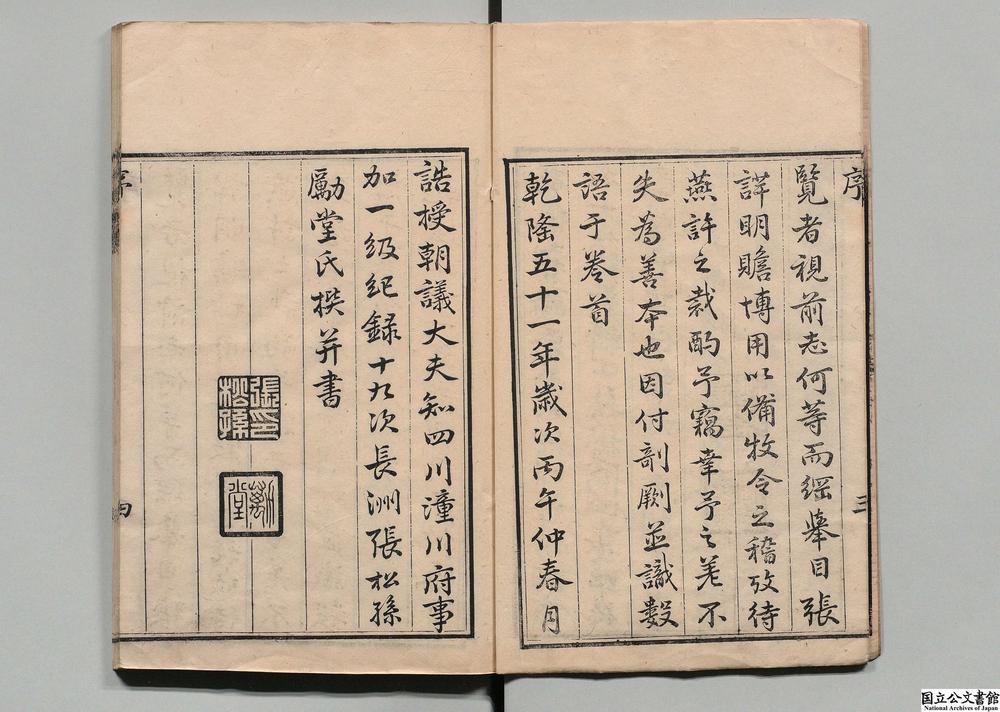 序
三
覽者視前志何等而綱舉目張
詳明贍博用以備牧令之稽攷待
燕許之裁酌予竊幸予之差不
失為善本也因付剞劂並識數
語于卷首
乾隆五十一年歲次丙午仲春月
誥授朝議大夫知四川潼川府事
加一級紀錄十九次長洲張松孫
勵堂氏撰并書
張印松孫
勵堂
序
四
国立公文書館
National Archives of Japan